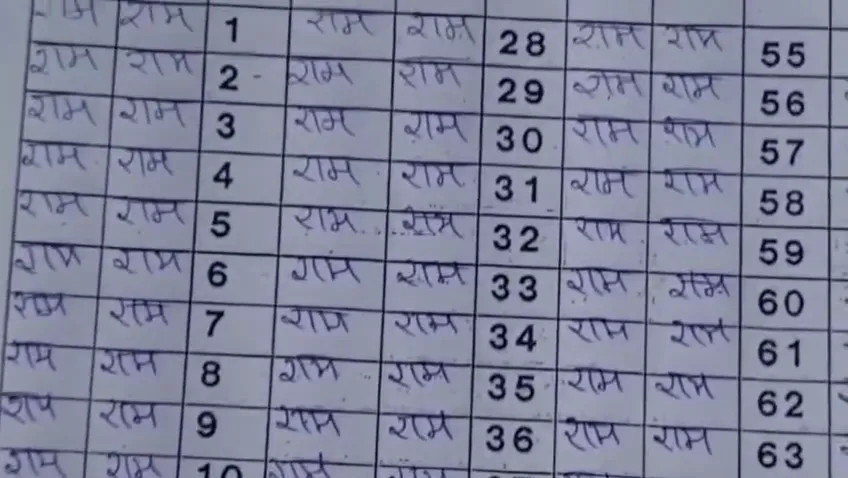 राम राम 1 राम राम 28 राम राम 55
राम राम 2 राम राम 29 राम राम 56
राम राम 3 राम राम 30 राम राम 57
राम राम 4 राम राम 31 राम राम 58
राम राम 5 राम राम 32 राम राम 59
राम राम 6 राम राम 33 राम राम 60
राम राम 7 राम राम 34 राम राम 61
राम राम 8 राम राम 35 राम राम 62
राम राम 9 राम राम 36 राम राम 63
राम राम 10 राम